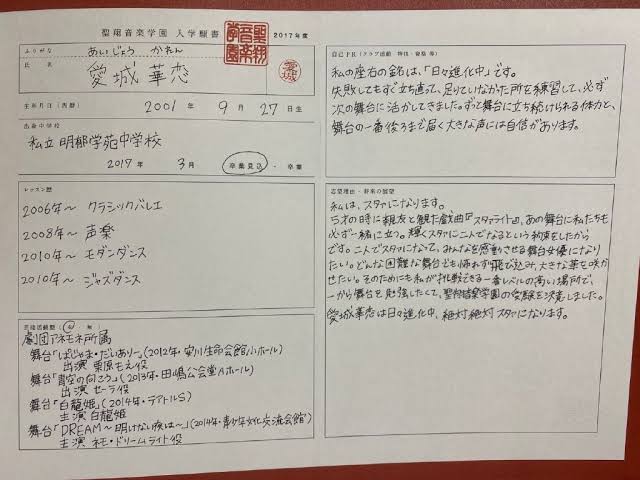 聖翔音楽学園 入学願書 2017年度
聖翔音楽学園
ふりがな あいじょう かれん
氏名 愛城華恋
愛城
生年月日(西暦) 2001年 9月 27日生
出身中学校
私立 明都学苑中学校
2017年 3月 卒業見込・卒業
レッスン歴
2006年~ クラシックバレエ
2008年~ 声楽
2010年~ モダンダンス
2010年~ ジャズダンス
芸能活動歴(有・無)
劇団アネモネ所属
舞台「ぱじゃま・だいありー。」(2012年・栄川生命会館小ホール)
出演 栗原もえ役
舞台「青空の向こう」(2013年・田嶋公会堂Aホール)
出演 セーラ役
舞台「白龍姫」(2014年・テアトルS)
主演 白龍姫
舞台「DREAM~明けない夜は~」(2014年・青少年文化交流会館)
主演 ネモ・ドリームライト役
自己PR(クラブ活動 特技・資格 等)
私の座右の銘は、「日々進化中」です。
失敗してもすぐ立ち直って、足りていなかった所を練習して、必ず
次の舞台に活かしてきました。ずと舞台に立ち続けられる体力と、
舞台の一番後ろまで届く大きな声には自信があります。
志望理由・将来の展望
私は、スタァになります。
5才の時に親友と観た戯曲『スタァライト』、あの舞台に私たちも
必ず一緒に立つ。輝くスタァに二人でなるという約束をしたから
です。二人でスタァになって、みんなを感動させる舞台女優になり
たい。どんな困難な舞台でも怖れず飛び込み、大きな華を咲か
せたい。そのためにも私が挑戦できる一番レベルの高い場所で、
一から舞台を勉強したくて、聖翔音楽学園の受験を決意しました。
愛城華恋は日々進化中、絶対絶対スタァになります。